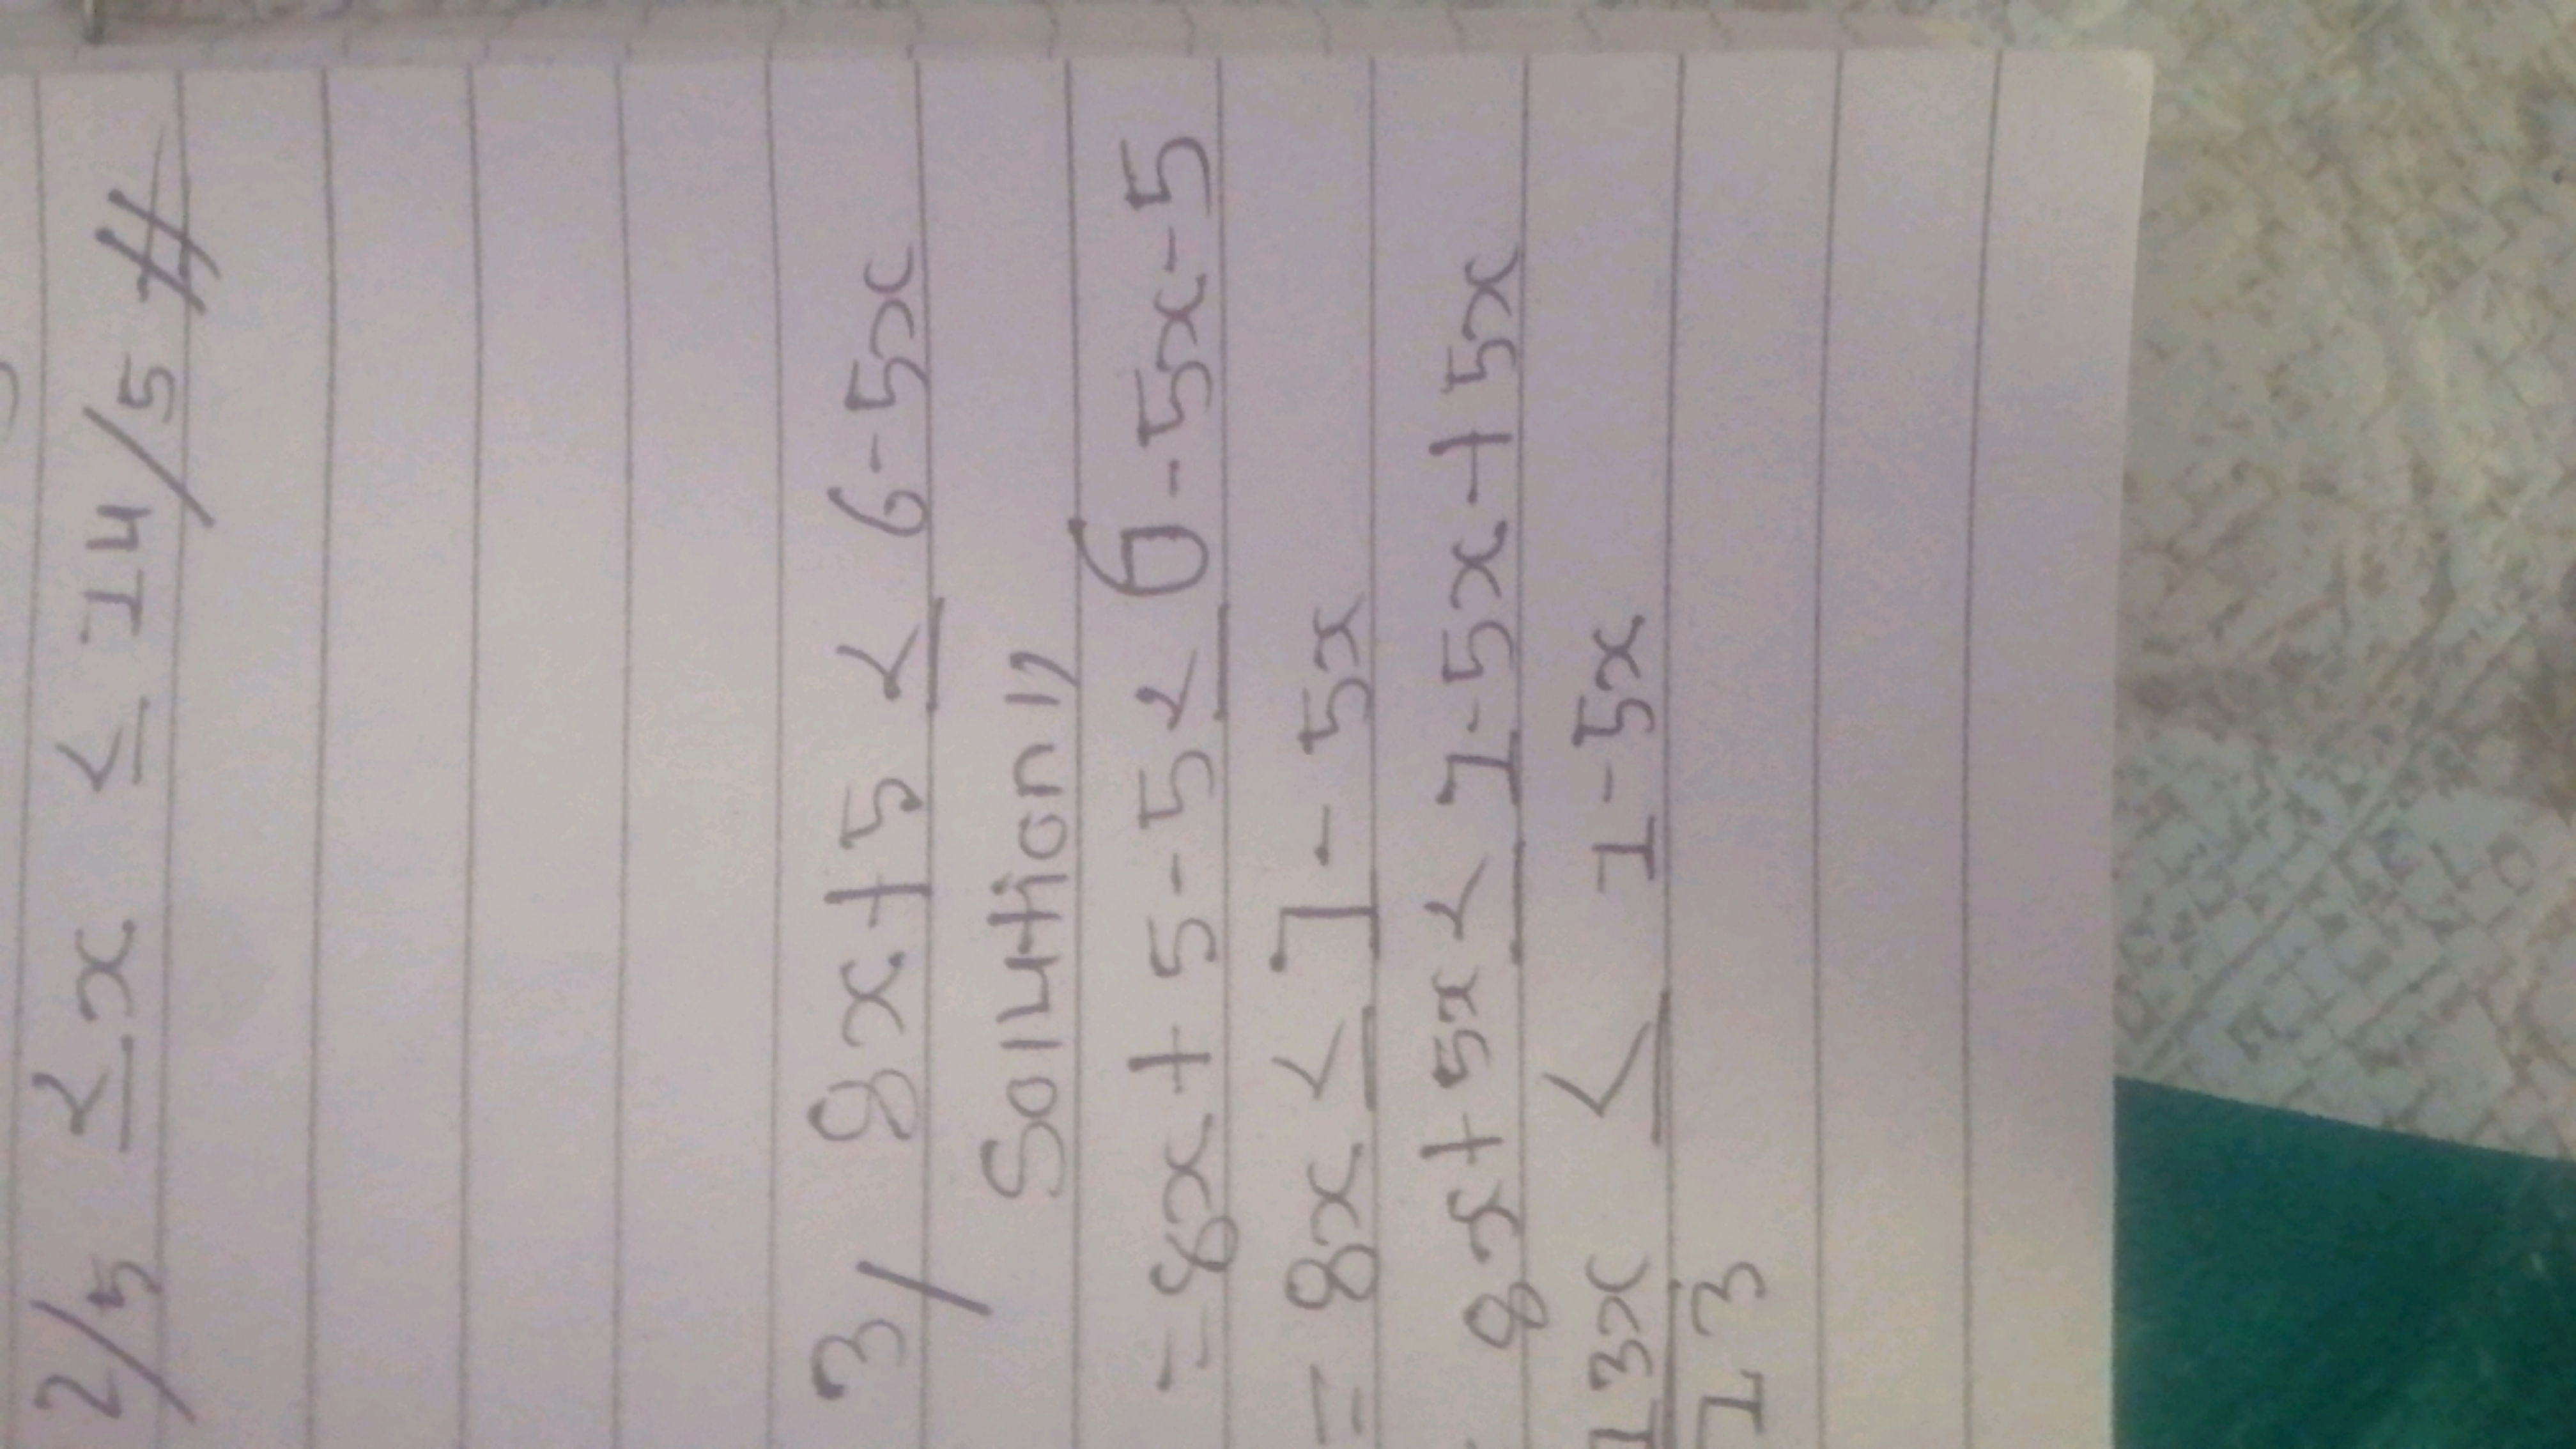 2/5 ≤ x ≤ 14/5 //
3/ 8x+5 ≤ 6-5x
Solution//
= 8x+5-5 ≤ 6-5x-5
= 8x ≤ 1-5x
8x+5x ≤ 1-5x+5x
13x ≤ 1-5x
13